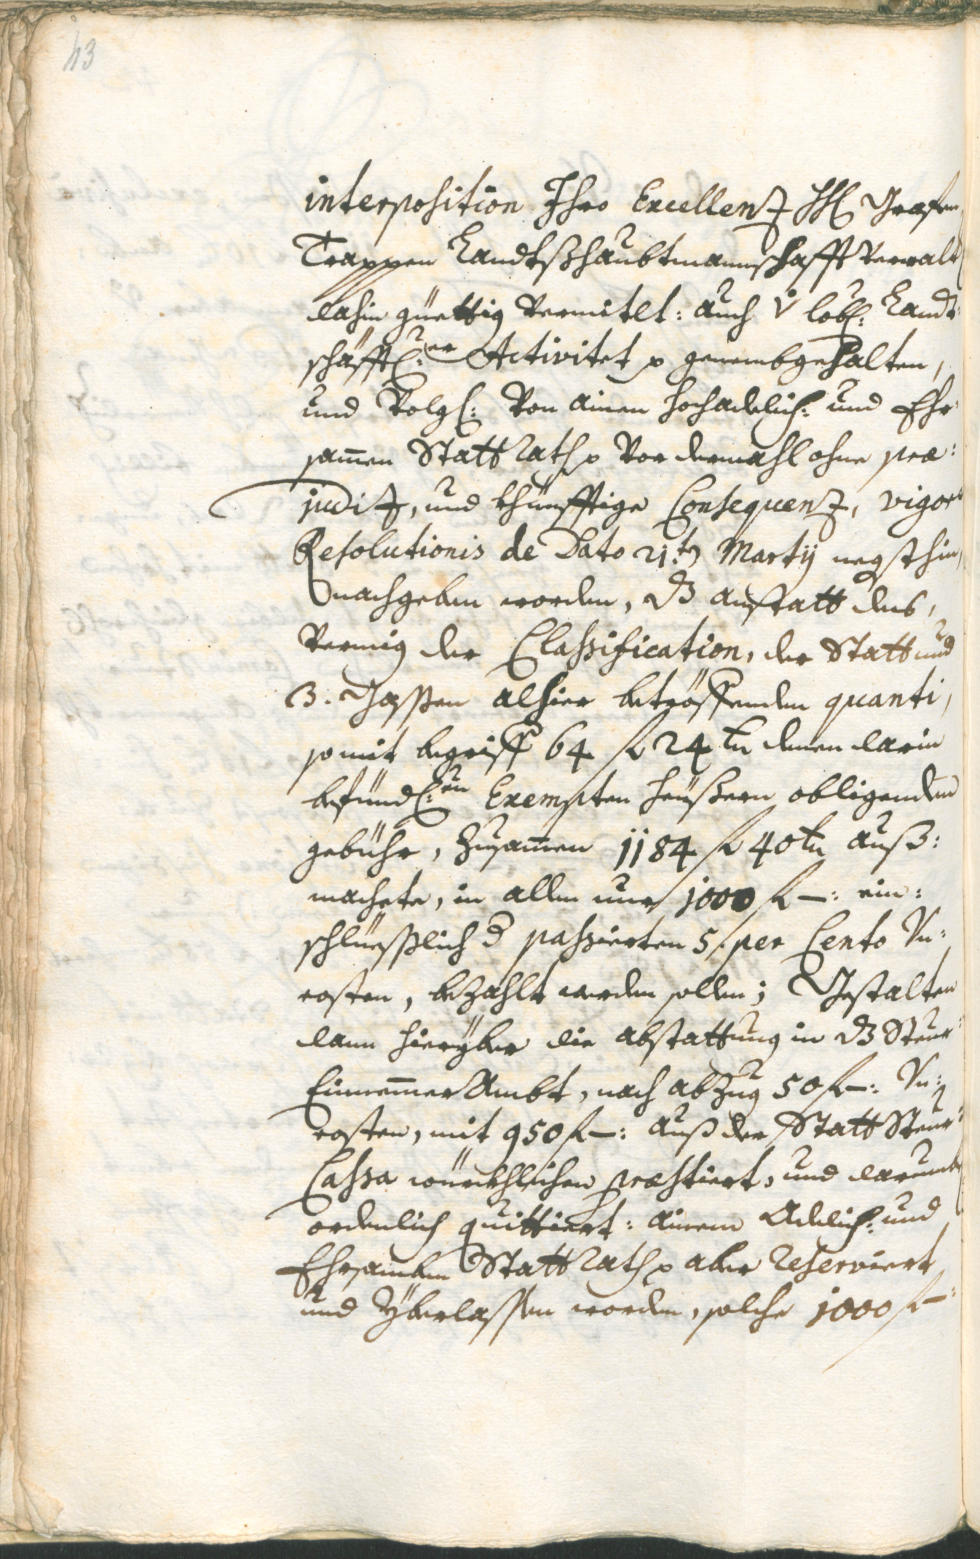 43
interposition Ihro Excellenz HH Grafen
Trappen Landtßhaubtmannschafft Verwalt
dahin güettig vermitlt: auch v: lobl: Landt-
schäfftl:er Activitet p genembgehalten,
und Volgl: von ainen hochadelich: und Ehr-
samen Statt Rath p vor dermahl ohne præ:
judiz, und khünfftige Consequenz, vigore
Resolutionis de Dato 21:ten Martij negsthin
nachgeben worden, dß anstatt des,
vermig der Classification, der Statt und
3. Gassen alhier betröffenden quanti,
somit begriff 64 fl 24 kr denen darin
befündl:en Exempten heüßern obligenden
gebühr, zusamen 1184 fl 40 kr auß:
machete, in allem nur 1000 fl –: ein:
schlüeßlich d passierten 5. per Cento Un:
costen, bezahlt werden sollen; Gestalten
dann hieryber die abstattung in dß Steur
Einnemmer Ambt, nach abzug 50 fl –: Un:
costen, mit 950 fl –: auß der Statt Steur
Cassa würckhlichen præstiert, und darumb
ordenlich quittiert: ainem Adelich: und
Ehrsamben Statt Rath p aber reserviert
und yberlassen worden, solche 1000 fl –: